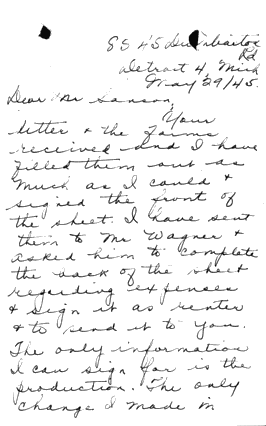 8545 Dumbarton
Rd
Detroit 4, Mich
May 29/45.
Dear Mr Sanson,
Your
letter & the Forms
received and I have
filled them out as
much as I could &
signed the front of
the sheet. I have sent
them to Mr Wagner &
asked him to complete
the back of the sheet
regarding expenses
& sign it as renter
& to send it to you.
The only information
I can sign for is the
production. The only
change I made in